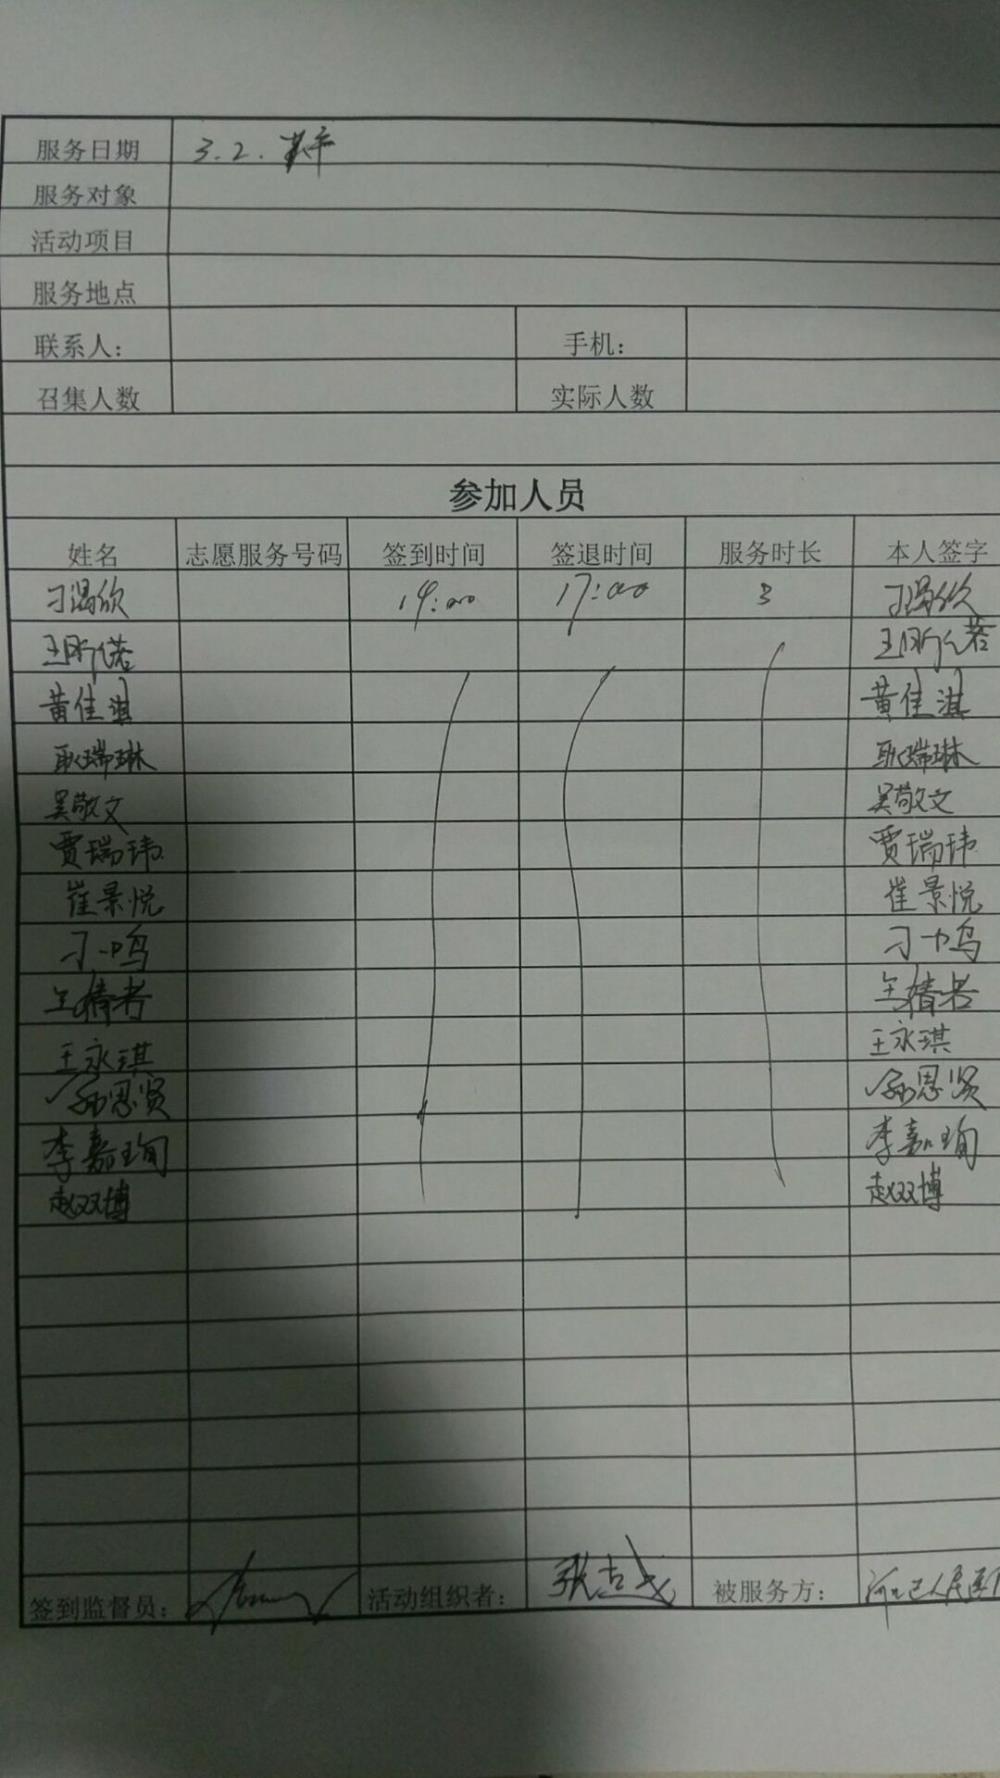 服务日期 3.2.
服务对象
活动项目
服务地点
联系人： 手机：
召集人数 实际人数
参加人员
姓名 志愿服务号码 签到时间 签退时间 服务时长 本人签字
刁 欣 14:00 17:00 3 刁 欣
王昕偌 王昕偌
黄佳淇 黄佳淇
耿瑞琳 耿瑞琳
吴敬文 吴敬文
贾瑞玮 贾瑞玮
崔景悦 崔景悦
刁一鸣 刁一鸣
王永琪 王永琪
孙思贤 孙思贤
李嘉珣 李嘉珣
赵双博 赵双博
签到监督员： 活动组织者： 张 被服务方：